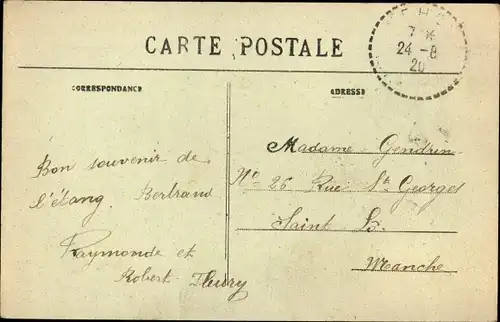 CARTE POSTALE
7 *
24 - 8
20
CORRESPONDANCE
ADRESSE
Bon souvenir de
l'étang. Bertrand
Raymonde et
Robert Fleury
Madame Gendrin
No 26 Rue St Georges
Saint L.
Manche